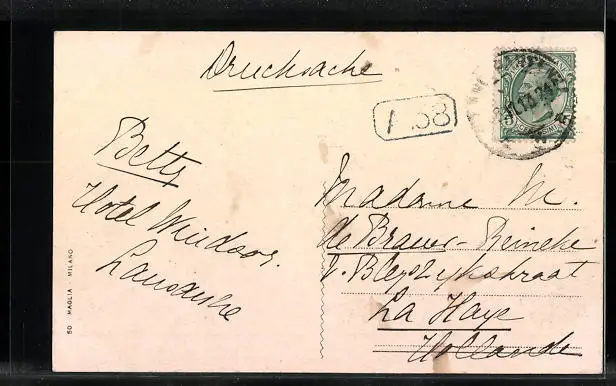 Drucksache
Betty
Hotel Windsor.
Lausanne
Madame M.
de Brauer-Reineke
La Haye
Hollande
50 MAGLIA MILANO